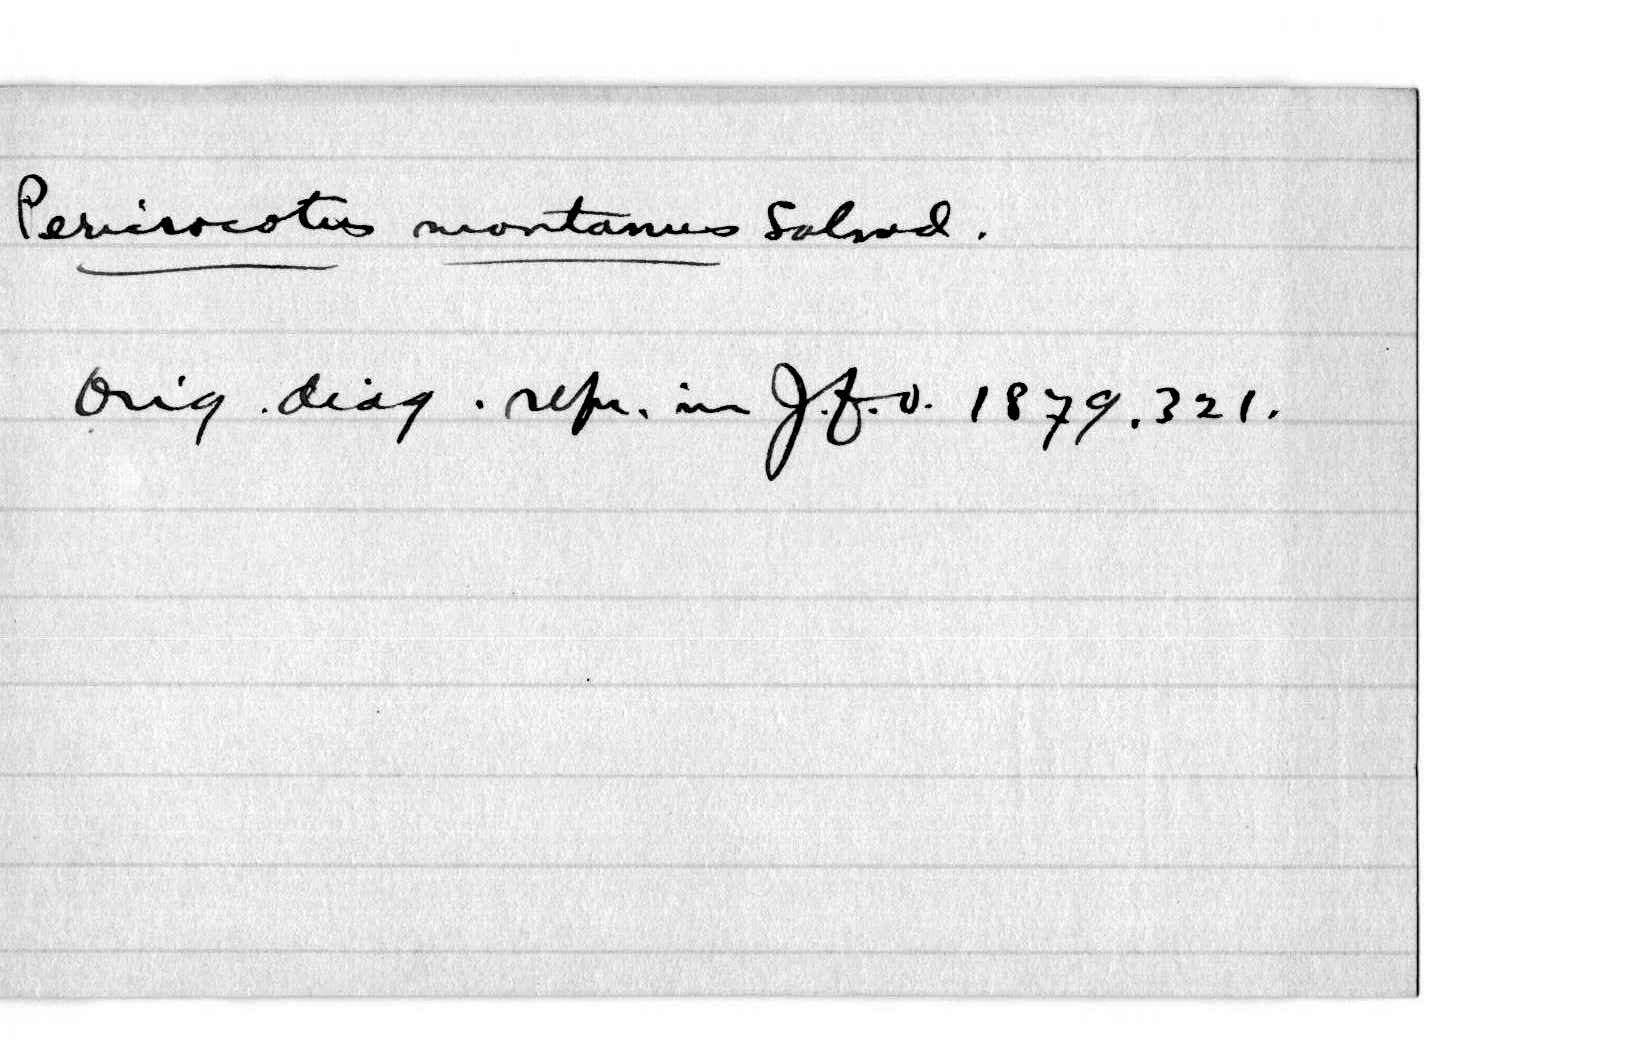 Pericrocotus montanus Salvad.
Orig. diag. repr. in J.f.O. 1879.321.